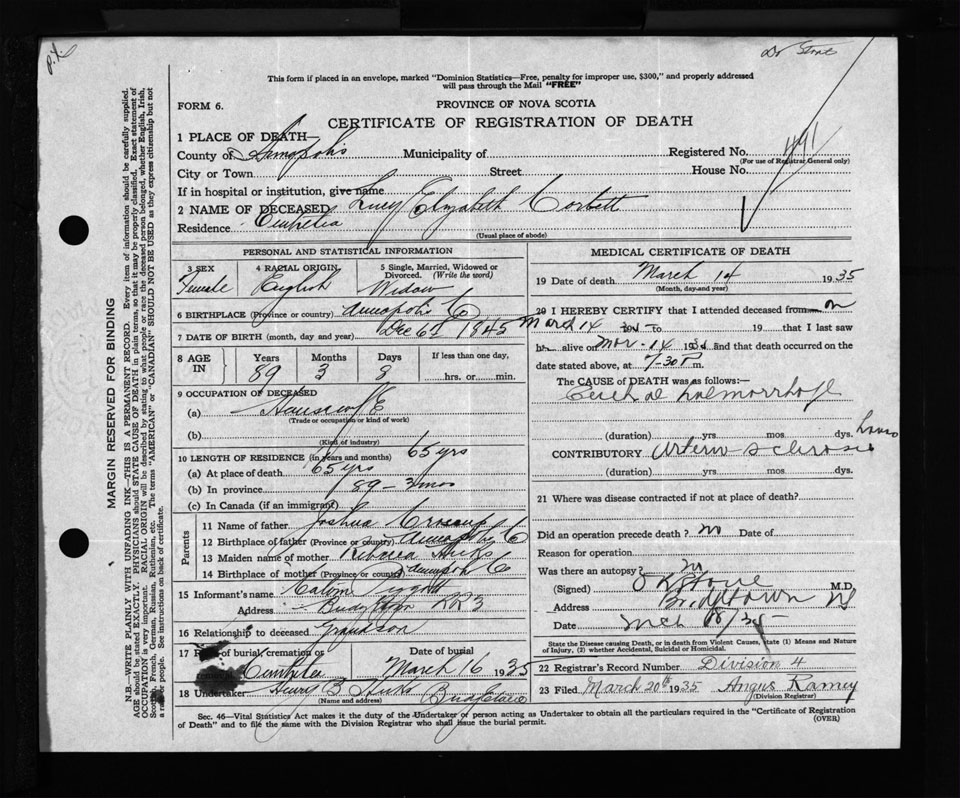 Dr Stone
This form if placed in an envelope, marked "Dominion Statistics—Free, penalty for improper use, $300," and properly addressed
will pass through the Mail "FREE"
FORM 6. PROVINCE OF NOVA SCOTIA
CERTIFICATE OF REGISTRATION OF DEATH
1 PLACE OF DEATH—
County of Annapolis Municipality of Registered No. 491
(For use of Registrar General only)
City or Town Street House No.
If in hospital or institution, give name
2 NAME OF DECEASED Lucy Elizabeth Corbett
Residence Centrelea
(Usual place of abode)
PERSONAL AND STATISTICAL INFORMATION
3 SEX 4 RACIAL ORIGIN 5 Single, Married, Widowed or
Divorced. (Write the word)
Female English Widow
6 BIRTHPLACE (Province or country) Annapolis Co
7 DATE OF BIRTH (month, day and year) Dec 6th 1845
8 AGE IN Years Months Days If less than one day,
89 3 8 hrs. or min.
9 OCCUPATION OF DECEASED
(a) Housewife
(Trade or occupation or kind of work)
(b)
(Kind of industry)
10 LENGTH OF RESIDENCE (in years and months) 65 yrs
(a) At place of death 65 yrs
(b) In province 89 - 3 mos
(c) In Canada (if an immigrant)
Parents
11 Name of father Joshua
12 Birthplace of father (Province or country) Annapolis Co
13 Maiden name of mother Rebecca Hicks
14 Birthplace of mother (Province or country) Annapolis Co
15 Informant's name
Address Bridgetown RR3
16 Relationship to deceased Grandson
17 of burial, cremation or Date of burial
Centrelea March 16 1935
18 Undertaker Henry B Hicks Bridgetown
(Name and address)
MEDICAL CERTIFICATE OF DEATH
19 Date of death March 14 1935
(Month, day and year)
20 I HEREBY CERTIFY that I attended deceased from on
March 14 193 to 19 that I last saw
h alive on Mar. 14 193 and that death occurred on the
date stated above, at 7-30 P m.
The CAUSE OF DEATH was as follows:—
Cerebral haemorrhage
(duration) yrs. mos. dys. hours
CONTRIBUTORY Arterio sclerosis
(duration) yrs. mos. dys.
21 Where was disease contracted if not at place of death?
Did an operation precede death? no Date of
Reason for operation
Was there an autopsy? no
(Signed) Stone M.D.
Address Bridgetown NS
Date Mch 18/35
State the Disease causing Death, or in death from Violent Causes, state (1) Means and Nature
of Injury, and (2) whether Accidental, Suicidal or Homicidal.
22 Registrar's Record Number Division 4
23 Filed March 20th 1935 Angus Ramey
(Division Registrar)
Sec. 46—Vital Statistics Act makes it the duty of the Undertaker or person acting as Undertaker to obtain all the particulars required in the "Certificate of Registration
of Death" and to file the same with the Division Registrar who shall issue the burial permit. (OVER)
MARGIN RESERVED FOR BINDING
N.B.—WRITE PLAINLY WITH UNFADING INK—THIS IS A PERMANENT RECORD. Every item of information should be carefully supplied.
AGE should be stated EXACTLY. PHYSICIANS should STATE CAUSE OF DEATH in plain terms, so that it may be properly classified. Exact statement of
OCCUPATION is very important. RACIAL ORIGIN will be described by stating to what people or race the deceased person belonged, whether English, Irish,
Scotch, French, German, Russian, Ruthenian, etc. The terms "AMERICAN" or "CANADIAN" SHOULD NOT BE USED as they express citizenship but not
a race or people. See instructions on back of certificate.